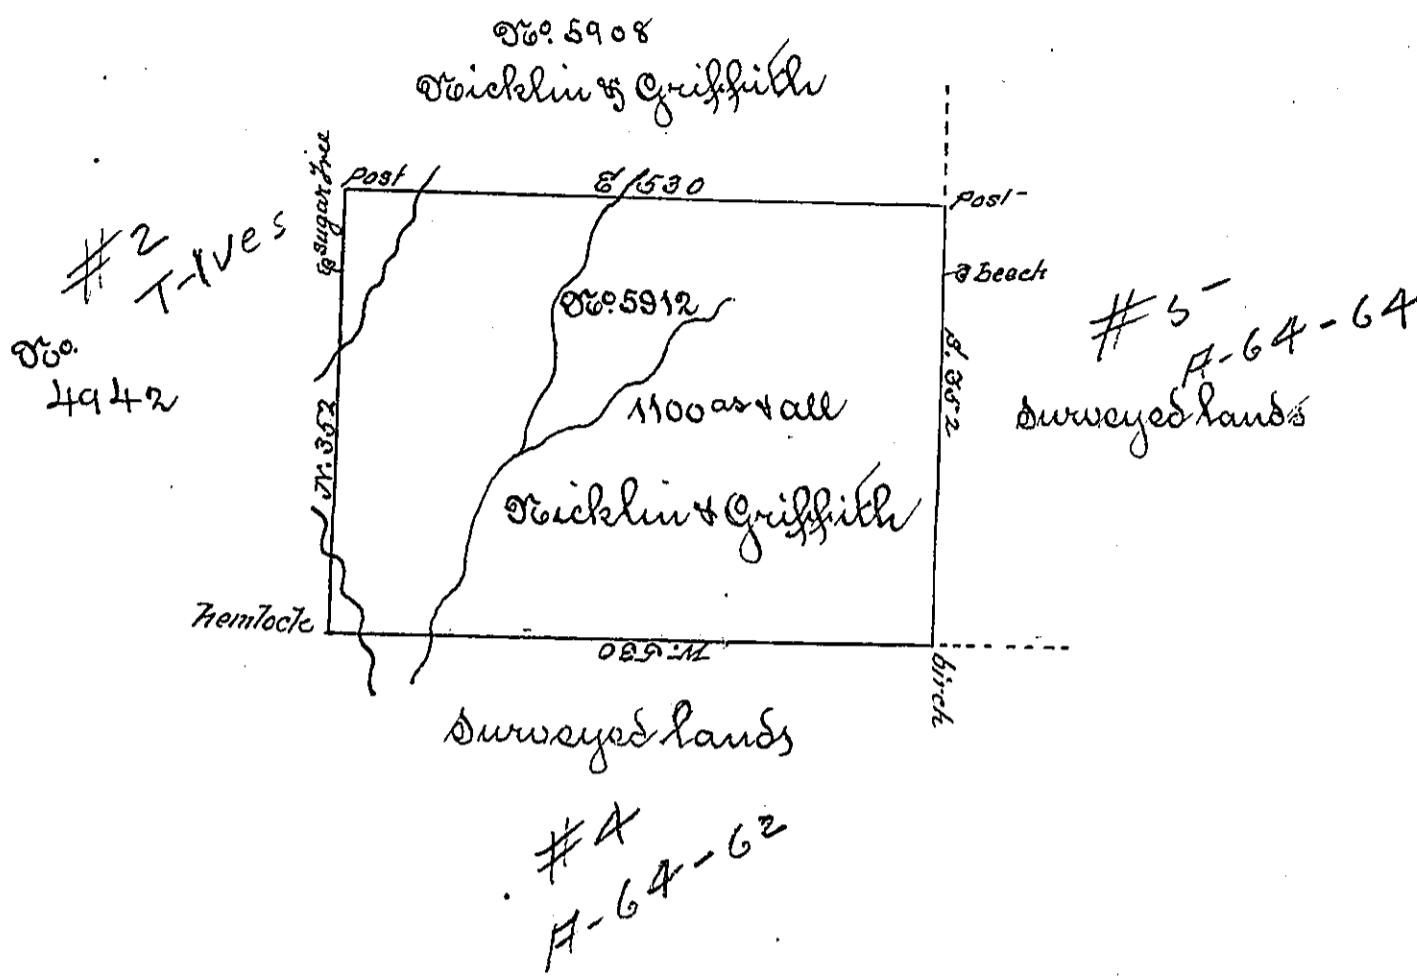 No. 5908
Nicklin & Griffith
Post
E 530
Post
a sugar Tree
a beach
#2
T-Ives
No.
4942
No. 5912
1100 as & all
Nicklin & Griffith
N. 352
S. 352
#5
A-64-64
Surveyed lands
hemlock
W. 530
birch
Surveyed lands
#4
A-64-62